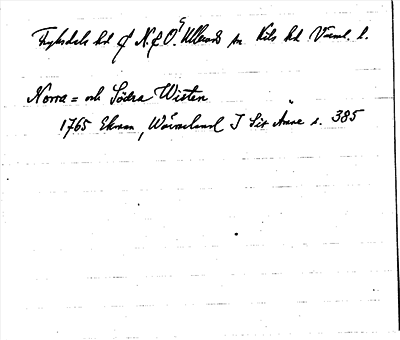 Fryksdals hd of N. f. Ö. Ullerud sn Kils hd Värml. l.
Norra = och Södra Wisten
1765 Ekman, Wärmeland I Sid Anne s. 385